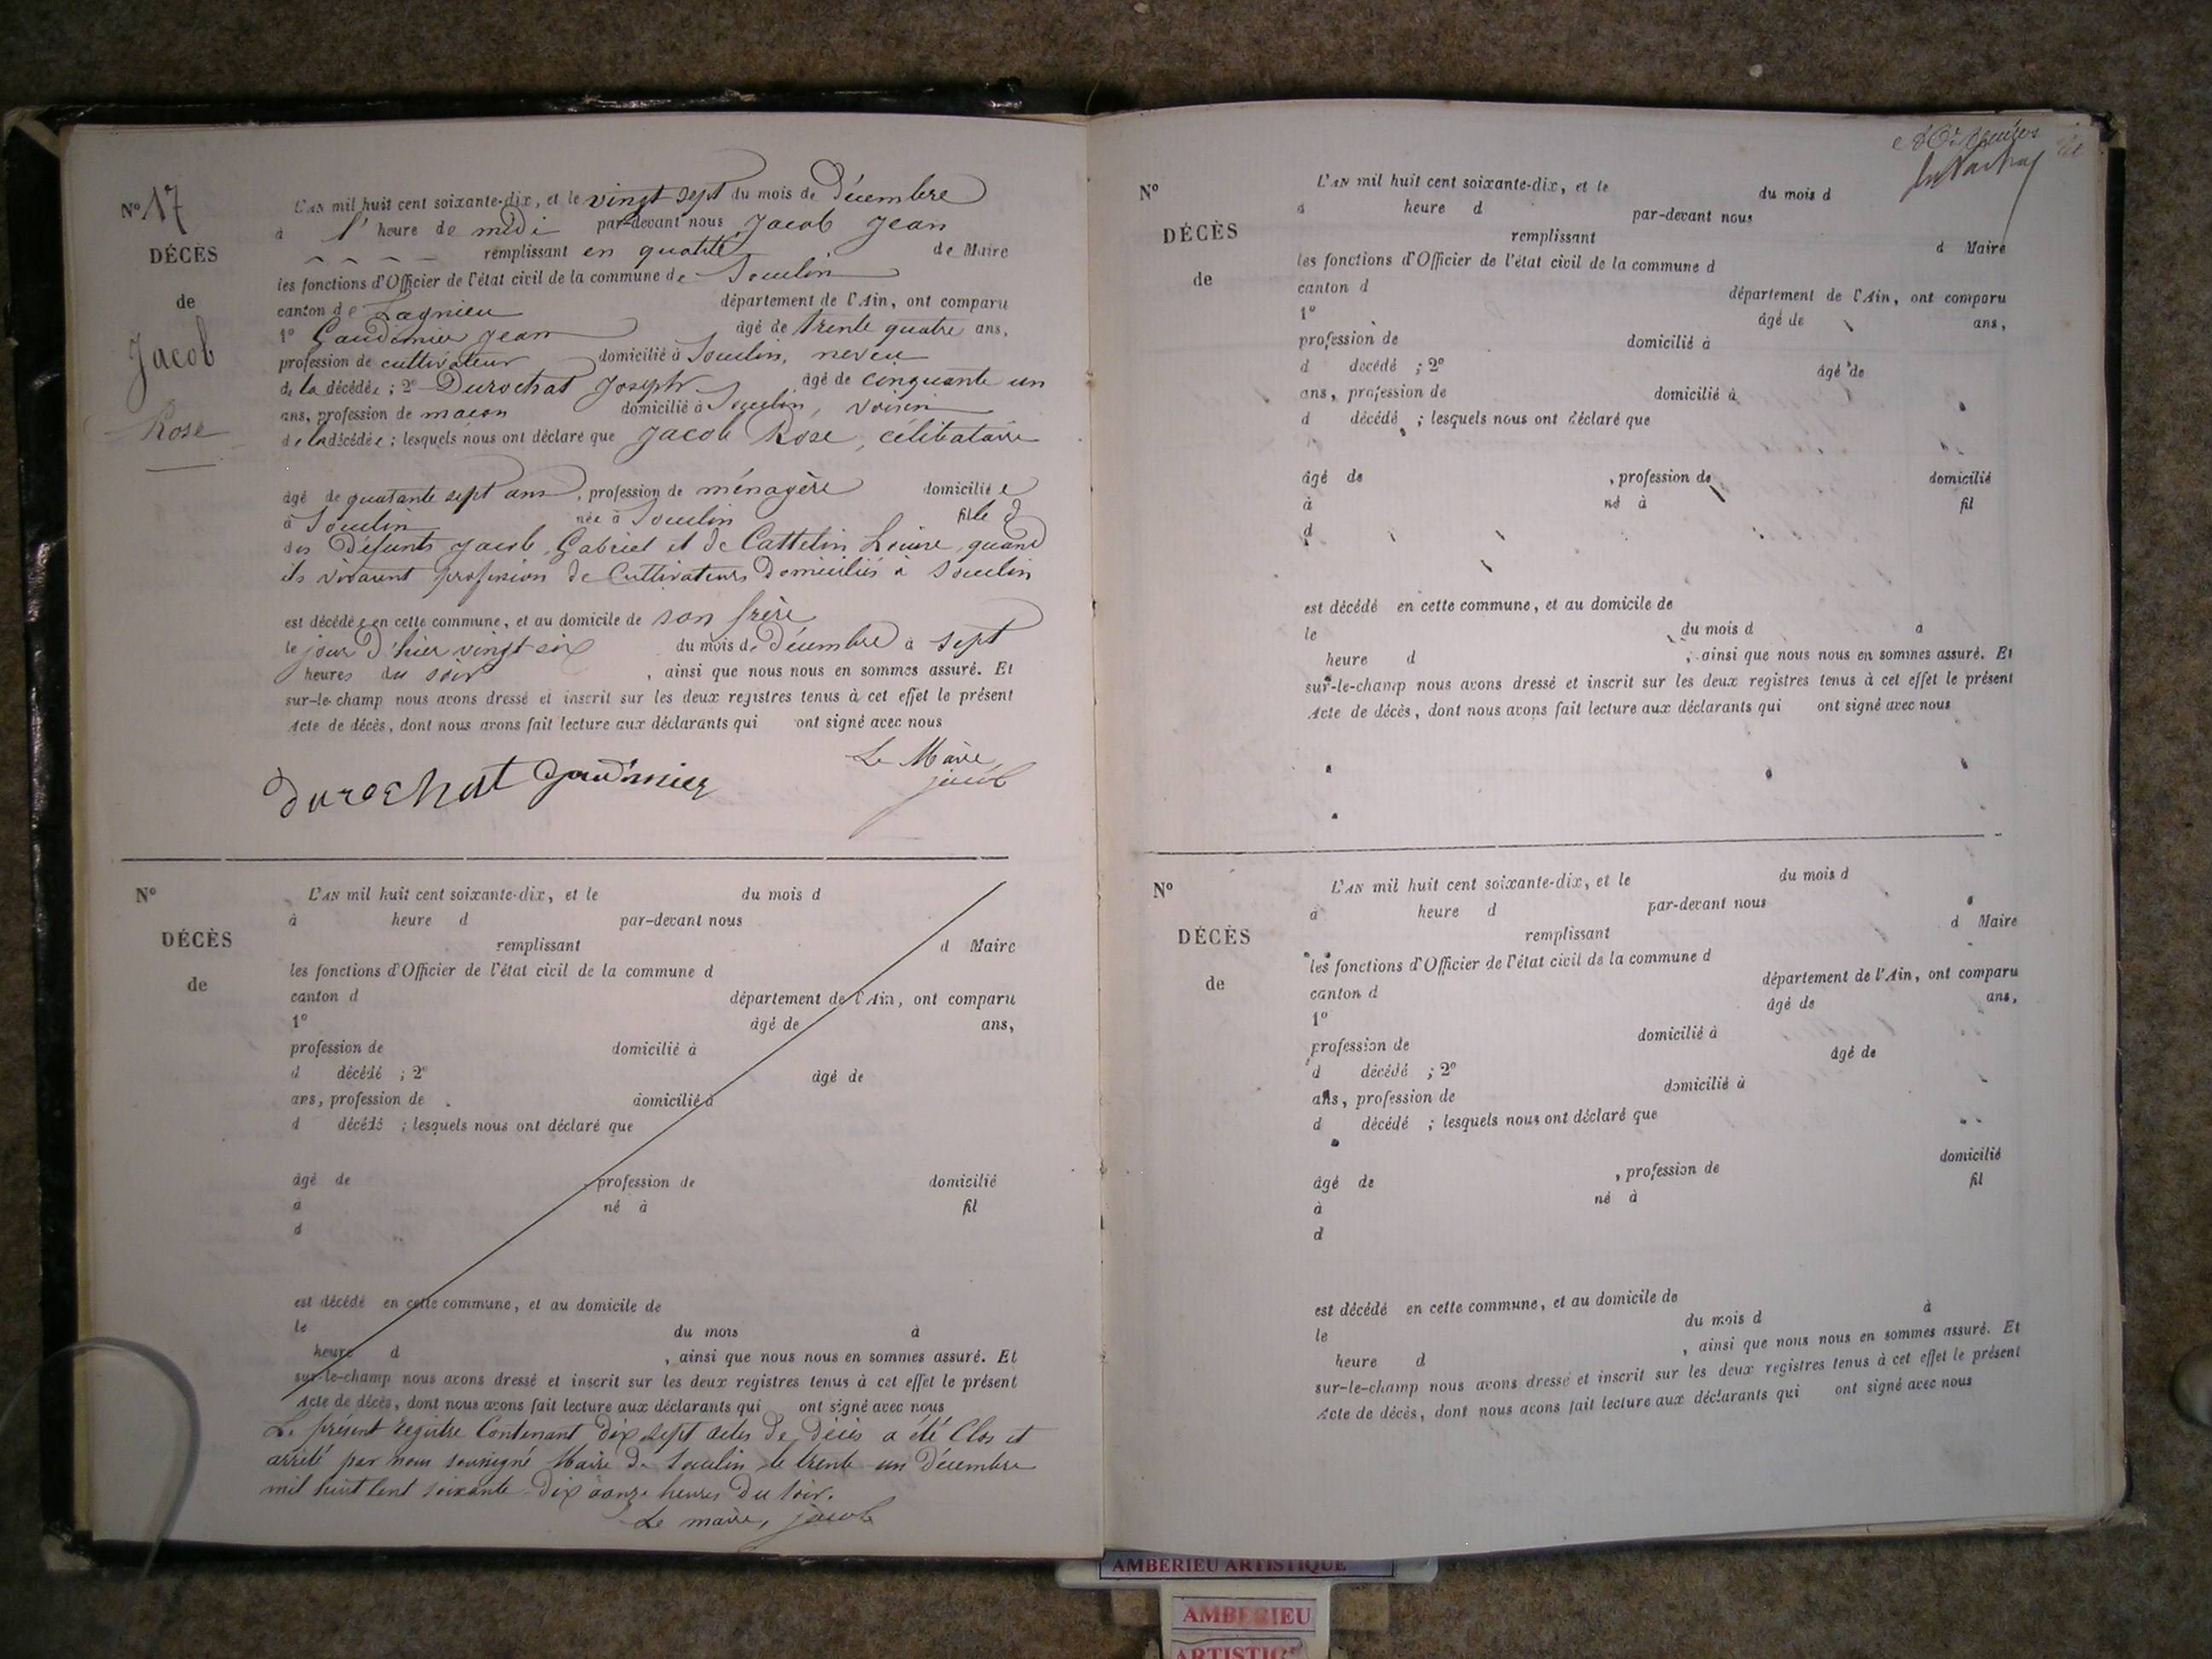 N° 17
DÉCÈS
de
Jacob
Rose
L'AN mil huit cent soixante-dix, et le vingt sept du mois de Décembre
à l' heure de midi par-devant nous Jacob Jean
remplissant en qualité de Maire
les fonctions d'Officier de l'état civil de la commune de Souclin
canton de Lagnieu département de l'Ain, ont comparu
1° Gaudinier Jean âgé de trente quatre ans,
profession de cultivateur domicilié à Souclin, neveu
de la décédée ; 2° Durochat Joseph âgé de cinquante un
ans, profession de maçon domicilié à Souclin, voisin
de la décédée ; lesquels nous ont déclaré que Jacob Rose, célibataire
âgé de quarante sept ans, profession de ménagère domiciliée
à Souclin née à Souclin fille d
des Défunts Jacob Gabriel et de Cattelin Louise, quand
ils vivaient profession de Cultivateurs Domiciliés à Souclin
est décédée en cette commune, et au domicile de son frère
le jour d'hier vingt six du mois de Décembre à sept
heures du soir, ainsi que nous nous en sommes assuré. Et
sur-le-champ nous avons dressé et inscrit sur les deux registres tenus à cet effet le présent
Acte de décès, dont nous avons fait lecture aux déclarants qui ont signé avec nous
Le Maire
durochat Gaudinier jacob
N°
DÉCÈS
de
L'AN mil huit cent soixante-dix, et le du mois d
à heure d par-devant nous
remplissant d Maire
les fonctions d'Officier de l'état civil de la commune d
canton d département de l'Ain, ont comparu
1° âgé de ans,
profession de domicilié à
d décédé ; 2° âgé de
ans, profession de domicilié à
d décédé ; lesquels nous ont déclaré que
âgé de profession de domicilié
à né à fil
d
est décédé en cette commune, et au domicile de
le du mois à
heure d , ainsi que nous nous en sommes assuré. Et
sur-le-champ nous avons dressé et inscrit sur les deux registres tenus à cet effet le présent
Acte de décès, dont nous avons fait lecture aux déclarants qui ont signé avec nous
Le présent registre Contenant Dix sept actes De Décès a été Clos et
arrêté par nous soussigné Maire de Souclin le trente un Décembre
mil huit cent soixante Dix à onze heures Du soir.
Le maire, jacob
N°
DÉCÈS
de
L'AN mil huit cent soixante-dix, et le du mois d
à heure d par-devant nous
remplissant d Maire
les fonctions d'Officier de l'état civil de la commune d
canton d département de l'Ain, ont comparu
1° âgé de ans,
profession de domicilié à
d décédé ; 2° âgé de
ans, profession de domicilié à
d décédé ; lesquels nous ont déclaré que
âgé de , profession de domicilié
à né à fil
d
est décédé en cette commune, et au domicile de
le du mois d à
heure d , ainsi que nous nous en sommes assuré. Et
sur-le-champ nous avons dressé et inscrit sur les deux registres tenus à cet effet le présent
Acte de décès, dont nous avons fait lecture aux déclarants qui ont signé avec nous
N°
DÉCÈS
de
L'AN mil huit cent soixante-dix, et le du mois d
à heure d par-devant nous
remplissant d Maire
les fonctions d'Officier de l'état civil de la commune d
canton d département de l'Ain, ont comparu
1° âgé de ans,
profession de domicilié à
d décédé ; 2° âgé de
ans, profession de domicilié à
d décédé ; lesquels nous ont déclaré que
âgé de , profession de domicilié
à né à fil
d
est décédé en cette commune, et au domicile de
le du mois d à
heure d , ainsi que nous nous en sommes assuré. Et
sur-le-champ nous avons dressé et inscrit sur les deux registres tenus à cet effet le présent
Acte de décès, dont nous avons fait lecture aux déclarants qui ont signé avec nous
AMBERIEU ARTISTIQUE
AMBERIEU
ARTISTIQ